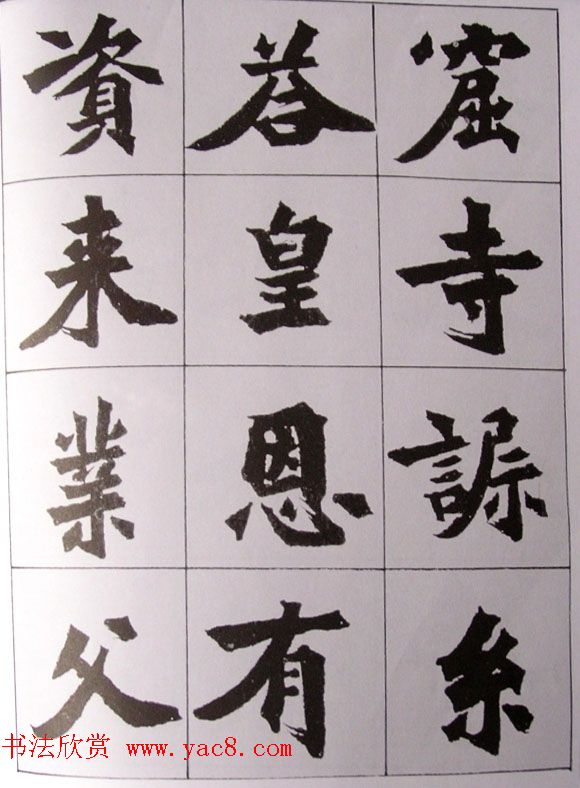 窟寺系
荅皇恩有
資来業父
书法欣赏 www.yac8.com